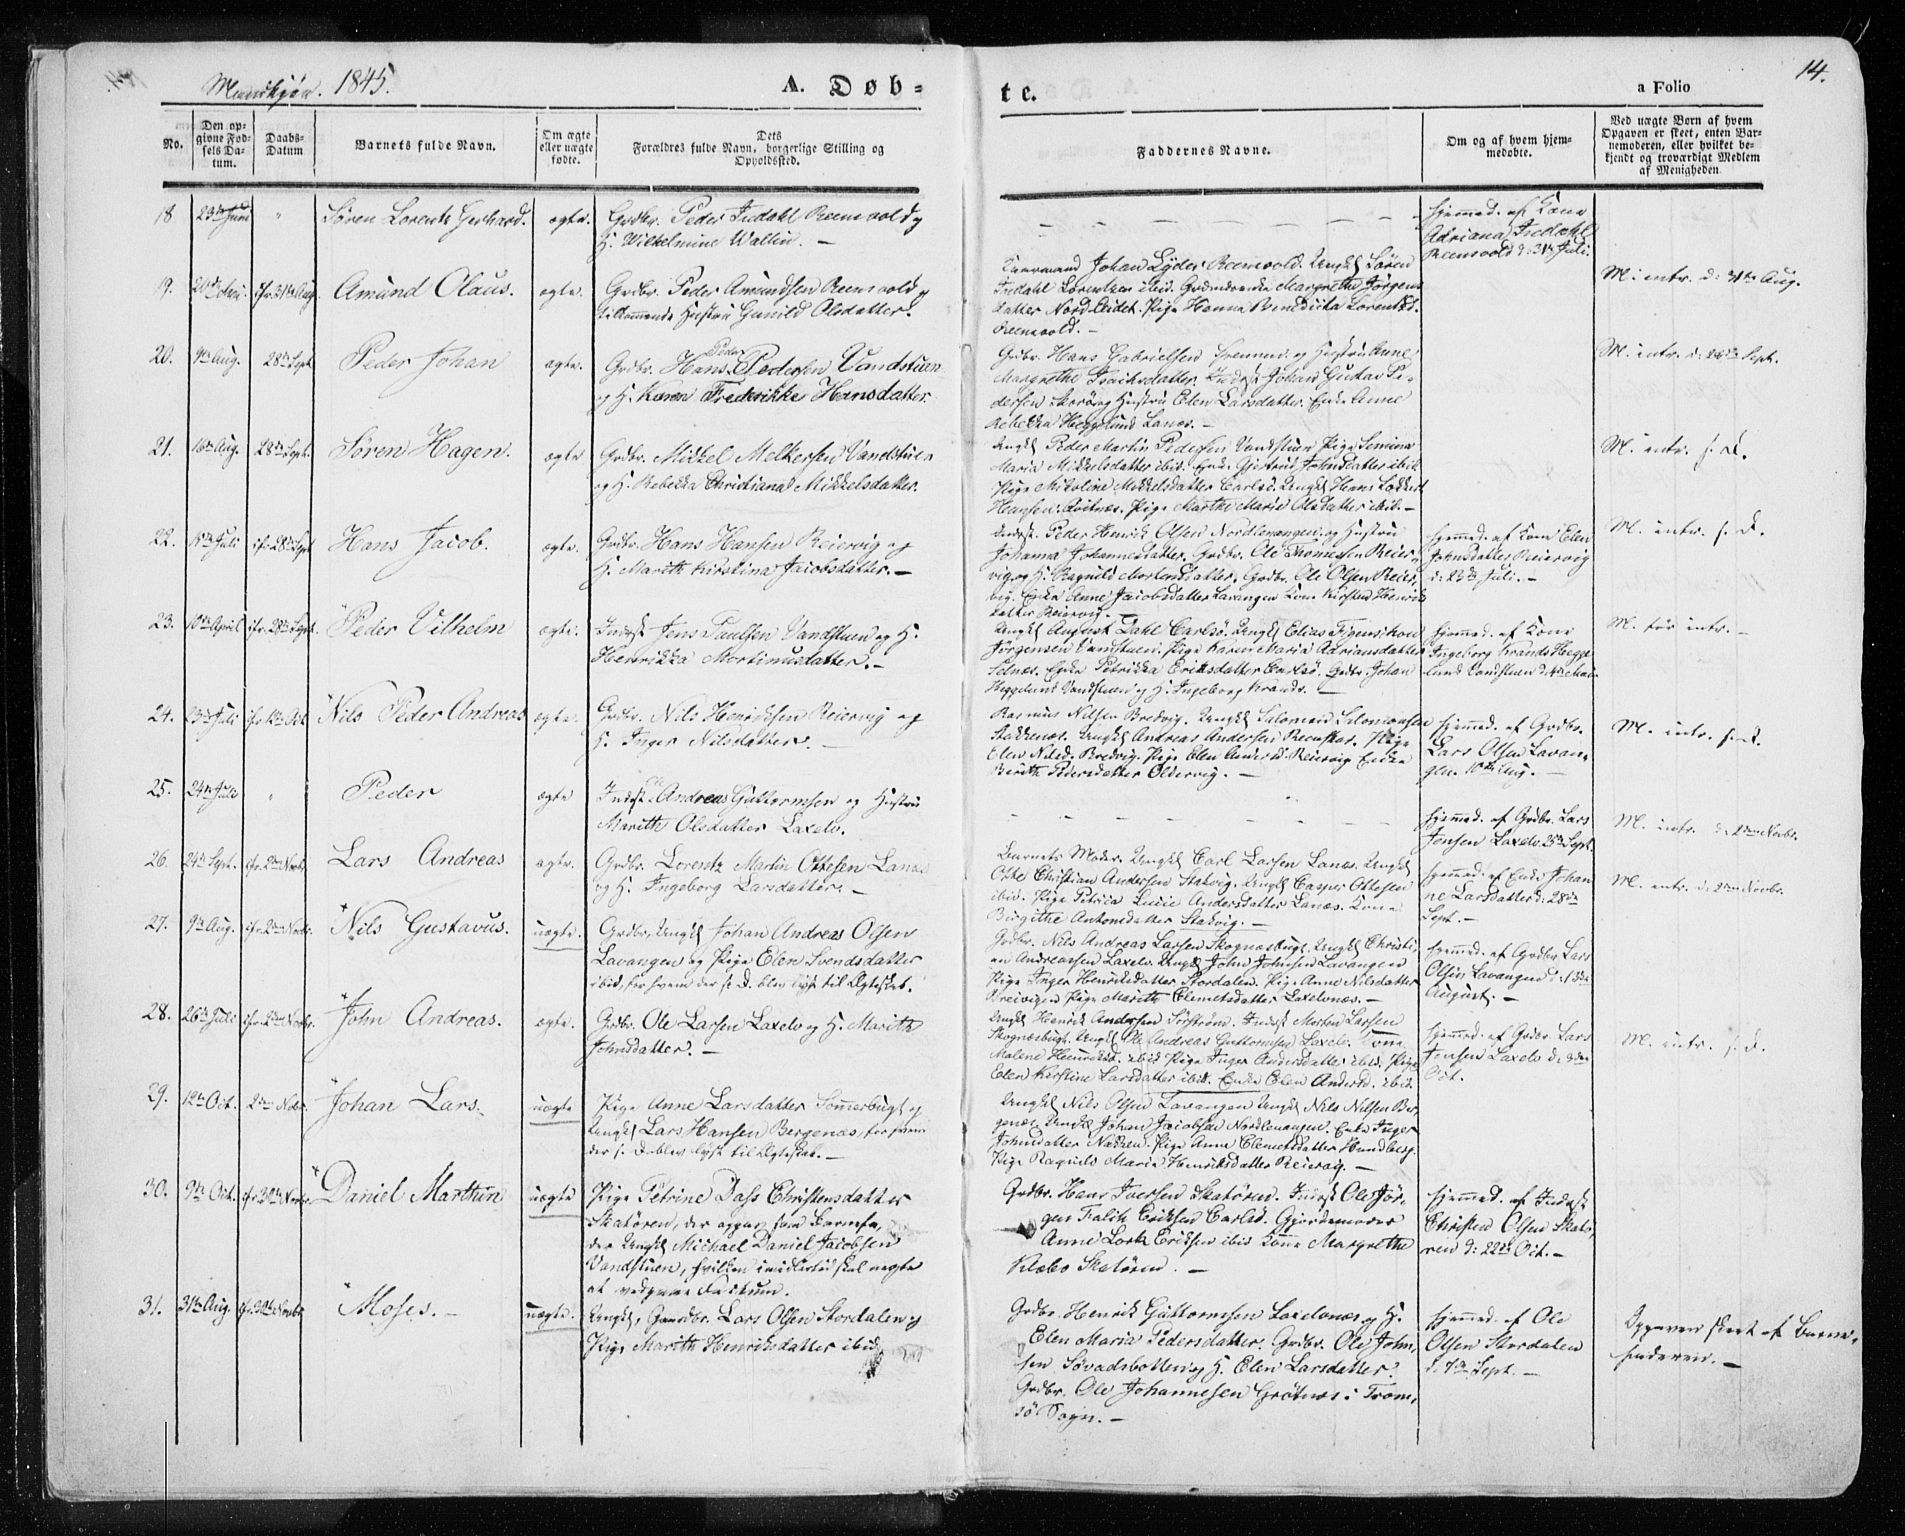 Mandkjøn. 1845.
A. Døb-
te.
a Folio
14.
No.
Den op-
givne Fød-
sels Da-
tum.
Daabs-
Datum
Barnets fulde Navn.
Om ægte
eller uægte
fødte.
Dets
Forældres fulde Navn, borgerlige Stilling og
Opholdssted.
Faddernes Navne.
Om og af hvem hjem-
medøbte.
Ved uægte Børn af hvem
Opgaven er skeet, enten Bar-
nemoderen, eller hvilket be-
kjendt og troværdigt Medlem
af Menigheden.
18 23de Juni " Søren Lorents Gerhard. ægte. Grdbr. Peder Indahl Reensvold og
H. Wilhelmine Wallin. —
hjemmed. af Kone
Adriana Indahl
Reensvold d: 31te Juli.
19. Amund Olaus. ægte. Grdbr. Peder Amundsen Reensvold og
tilkommende Hustru Gunild Olsdatter.
Johan Lyder Reensvold. Ungk. Søren
Indahl Lorentzen ibid. Margrethe Jørgens
datter Nord Eidet. Pige Hanna Benedicta Lorentsd.
Reensvold. —
M. intr. d: 31te Aug.
20. 9de Aug. 28de Sept Peder Johan ægte. Grdbr. Hans Peder Pedersen Vandstuen
og H. Karen Frederikke Hansdatter.
Grdbr. Hans Gabrielsen og Hustru Anne
Margrethe Isachsdatter. Inderst Johan Gustav Pe-
dersen Skorø og Hustru Elen Larsdatter. Enke Anne
Rebekka Heggelund Lanes. —
M. intr. d: 28de Sept.
21. 16de Aug. 28de Sept. Søren Hagen. ægte Grdbr. Mikkel Melkersen Vandstuen
og H. Rebekka Christiana Mikkelsdatter.
Ungk. Peder Martin Pedersen Vandstuen Pige Lemina
Maria Mikkelsdatter ibid. Enke Gjertrud Johnsdatter ibid.
Pige Nikoline Mikkelsdatter Carlsø. Ungk. Hans Lockert
Hansen. Pige Marthe Marie Olsdatter ibid. —
M. intr. s. D.
22. 15de Juli 28de Sept Hans Jacob. ægte. Grdbr. Hans Hansen Reiervig og
H. Marith Kirstina Jacobsdatter. —
Inderst. Peder Henrik Olsen Nordlenangen og Hustru
Johanna Johannesdatter. Grdbr. Ole Thomesen Reier-
vig og H. Ragnild Mortensdatter. Grdbr. Ole Olsen Reier-
vig. Enke Anne Jacobsdatter Lavangen Kone Kirsten Henriks
datter Reiervig. —
hjemmed. af Kone Elen
Johnsdatter Reiervig
d: 23de Juli. —
M. intr. s. D.
23. 10de April 28de Sept. Peder Vilhelm ægte. Inderst Jens Paulsen Vandstuen og H.
Henrikka Mortinusdatter. —
Ungk. August Dahl Carlsø. Ungk. Elias Figenschou
Jørgensen Vandstuen. Pige Karen Maria Adriansdatter
Selnes. Enke Petrikka Eriksdatter Carlsø. Grdbr. Johan
Heggelund Vandstuen og H. Ingeborg Krands. —
hjemmed. af Kone
Ingeborg Krands Hegge-
lund Vandstuen d. 4de Mai
M. før intr. —
24. 23de Juli 12te Oct. Nils Peder Andreas ægte. Grdbr. Nils Henriksen Reiervig og
H. Inger Nilsdatter. —
Rasmus Nilsen Bredvig. Ungk. Salomon Salomonsen
Stakkenæs. Ungk. Andreas Andersen Reenskar. Pige
Elen Nilsd. Bredvig. Pige Elen Andersd. Reiervig Enke
Berith Pedersdatter Oldervig. —
hjemmed. af Grdbr.
Lars Olsen Lavan-
gen. 10de Aug. —
M. intr. s. D.
25. 24de Juli " Peder ægte Inderst Andreas Guttormsen og Hustru
Marith Olsdatter Laxelv.
hjemmed. af Grdbr. Lars
Jensen Laxelv. 25de Sept.
M. intr. d. 2den Novbr.
26. 24de Sept. 2den Novbr. Lars Andreas ægte. Grdbr. Lorentz Martin Ottesen Lanes
og H. Ingeborg Larsdatter. —
Barnets Moder. Ungk. Carl Larsen Lanæs. Ungk.
Otte Christian Andersen Stakvig. Ungk. Casper Ottesen
ibid. Pige Petrica Lucie Andersdatter Lanæs. Kone
Birgithe Antonsdatter Stakvig. —
hjemmed. af Enke Johan
ne Larsdatter d: 28de
Sept. —
M. intr. d. 2den Novbr.
27. 9de Aug. 2den Novbr. Nils Gustavus. uægte. Grdbr. Ungk. Johan Andreas Olsen
Lavangen og Pige Elen Svendsdatter
ibid, for hvem der s. D. blev lyst til Ægteskab.
Grdbr. Nils Andreas Larsen Skognæsbugt. Ungk. Christi-
an Andreassen Laxelv. Ungk. John Johnsen Lavangen
Pige Inger Henriksdatter Stordalen. Pige Anne Nilsdatter
Breivigen Pige Marith Clemetsdatter Laxelvnæs. —
hjemmed. af Grdbr. Lars
Olsen Lavangen d: 13de
August. —
28. 26de Juli 2den Novbr. John Andreas. ægte. Grdbr. Ole Larsen Laxelv og H. Marith
Johnsdatter. —
Ungk. Henrik Andersen Sørstrøm. Inderst Morten Larsen
Skognæsbugt. Ungk. Ole Andreas Guttormsen Laxelv. Kone
Malene Henriksd. ibid Pige Inger Andersdatter ibid. Pige
Elen Kirstine Larsdatter ibid. Enke Elen Andersd. ibid.
hjemmed. af Grdbr. Lars
Jensen Laxelv d:
Oct.
M. intr. s. D.
29. 12te Oct. 2den Nobr. Johan Lars. uægte Pige Anne Larsdatter Sommerbugt og
Ungk. Lars Hansen Bergenæs, for hvem
der s. D. blev lyst til Ægteskab. —
Ungk. Nils Olsen Lavangen Ungk. Nils Nilsen Ber-
genæs Ungk. Johan Jacobsen Nordlenangen. Enke Inger
Johnsdatter Nakken. Pige Anne Clemetsdatter Hundberg.
Pige Ragnild Maria Henriksdatter Reiervig. —
30. 9de Oct. 30te Novbr. Daniel Marthin uægte Pige Petrine Dass Christensdatter
Skatøren, der opgav som Barnefa-
der Ungk. Michael Daniel Jacobsen
Vandstuen, hvilken imidlertid skal negte
at vedgaae Factum.
Grdbr. Hans Iversen Skatøren. Inderst Ole Jør-
gen Falch Eriksen Carlsø. Gjordemoder
Anne Lork Eriksen ibid Kone Margrethe
Klæbo Skatøren. —
hjemmed. af Inderst
Christen Olsen Skatø-
ren d: 22de Oct. —
31. 31te Aug. 30te Novbr. Moses. — uægte. Ungk. Gaardbr. Lars Olsen Stordalen og
Pige Marith Henriksdatter ibid
Grdbr. Henrik Guttormsen Laxelvnæs og H.
Elen Maria Pedersdatter. Grdbr. Ole John-
sen Sovadsbotten og H. Elen Larsdatter.
Grdbr. Ole Johannesen Grøtnæs i Trom-
sø Sogn. —
hjemmed. af Ole
Olsen Stordalen
d. 7de Sept. —
Opgaven skeet af Barne-
faderen. —